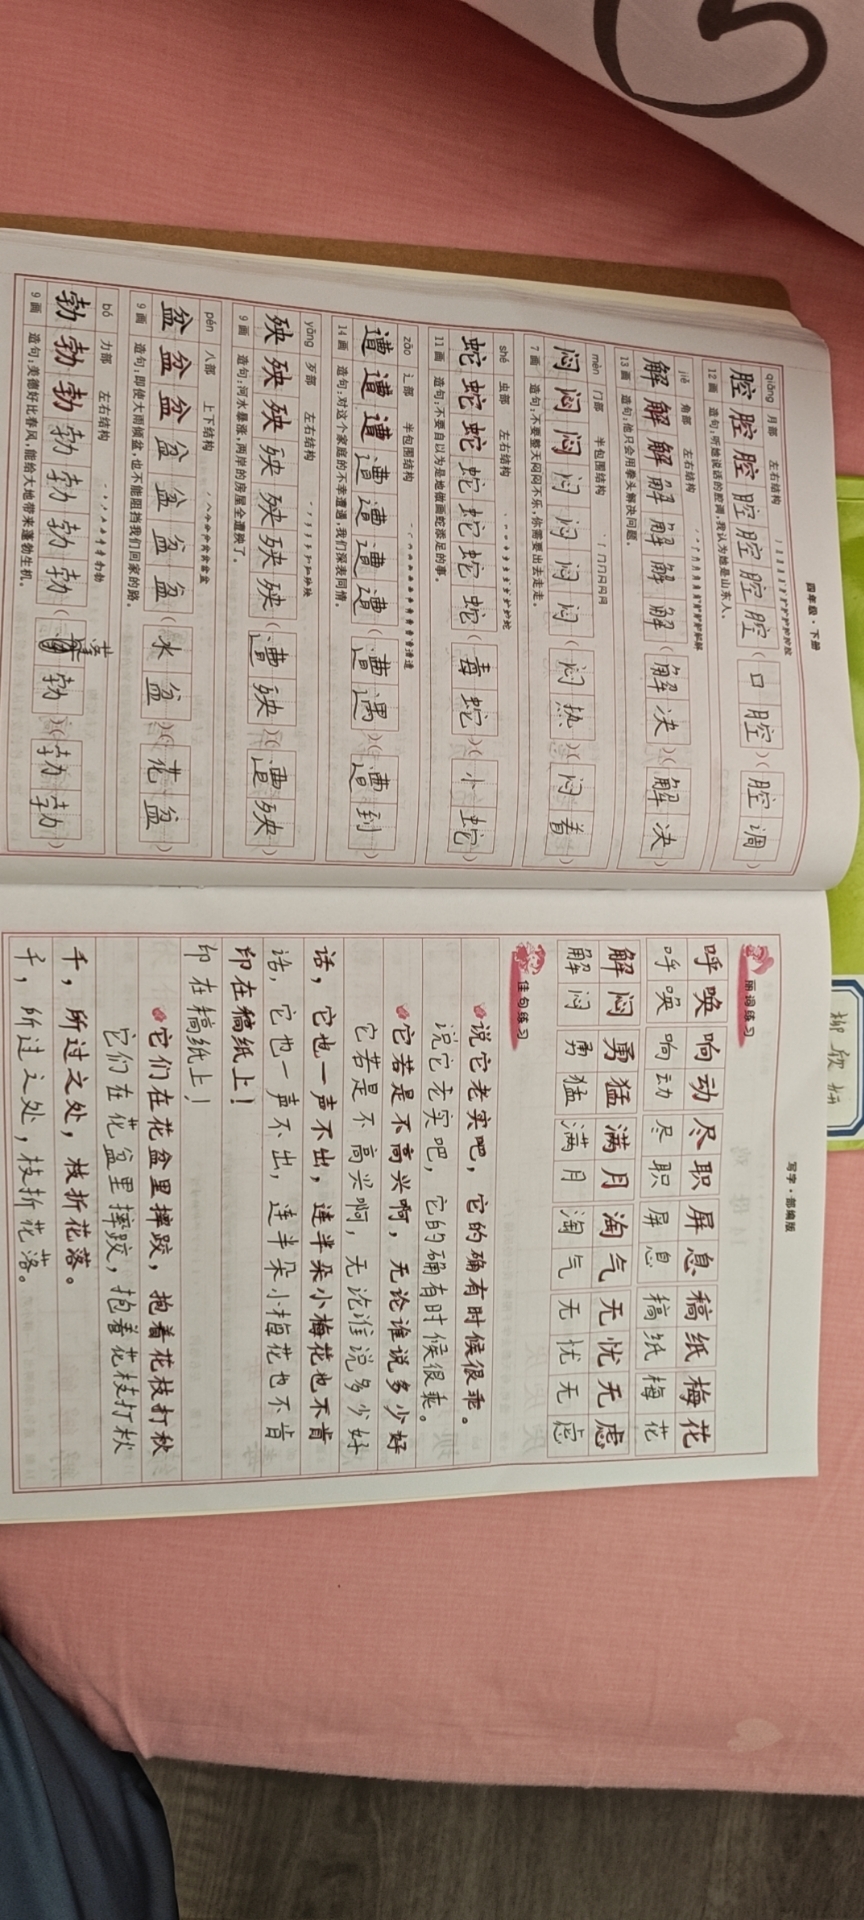 四年级·下册
qiāng 月部 左右结构
腔腔腔腔腔腔腔(口腔)(腔调)
12画 造句:听她说话的腔调,我认为她是山东人。
jiě 角部 左右结构
解解解解解解解(解决)(解决)
13画 造句:他只会用拳头解决问题。
mèn 门部 半包围结构
闷闷闷闷闷闷闷(闷热)(闷着)
7画 造句:不要整天闷闷不乐,你需要出去走走。
shé 虫部 左右结构
蛇蛇蛇蛇蛇蛇蛇(毒蛇)(小蛇)
11画 造句:不要自以为是地做画蛇添足的事。
zāo 辶部 半包围结构
遭遭遭遭遭遭遭(遭遇)(遭到)
14画 造句:对这个家庭的不幸遭遇,我们深表同情。
yāng 歹部 左右结构
殃殃殃殃殃殃殃(遭殃)(遭殃)
9画 造句:河水暴涨,两岸的房屋全遭殃了。
pén 八部 上下结构
盆盆盆盆盆盆盆(水盆)(花盆)
9画 造句:即使大雨倾盆,也不能阻挡我们回家的路。
bó 力部 左右结构
勃勃勃勃勃勃勃(蓬勃)(勃勃)
9画 造句:美德好比春风,能给大地带来蓬勃生机。
写字·部编版
丽词练习
呼唤 响动 尽职 屏息 稿纸 梅花
呼唤 响动 尽职 屏息 稿纸 梅花
解闷 勇猛 满月 淘气 无忧无虑
解闷 勇猛 满月 淘气 无忧无虑
佳句练习
说它老实吧,它的确有时候很乖。
说它老实吧,它的确有时候很乖。
它若是不高兴啊,无论谁说多少好
它若是不高兴啊,无论谁说多少好
话,它也一声不出,连半朵小梅花也不肯
话,它也一声不出,连半朵小梅花也不肯
印在稿纸上!
印在稿纸上!
它们在花盆里摔跤,抱着花枝打秋
它们在花盆里摔跤,抱着花枝打秋
千,所过之处,枝折花落。
千,所过之处,枝折花落。